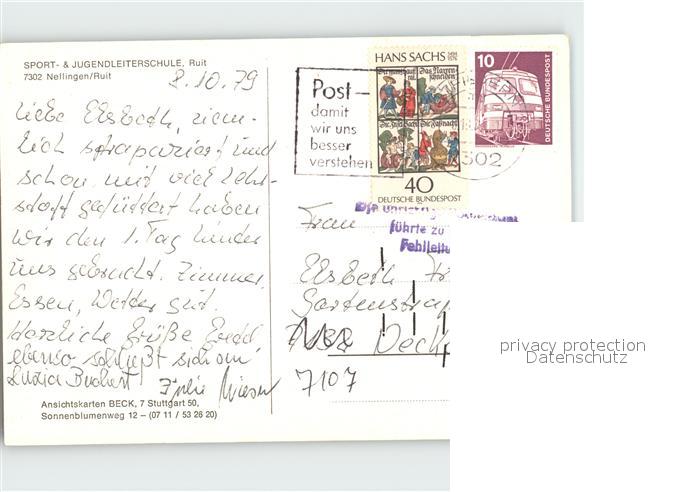 SPORT- & JUGENDLEITERSCHULE, Ruit
7302 Nellingen/Ruit
8.10.79
Liebe Elsbeth, ziem-
lich strapaziert und
schon mit viel Lehr-
stoff gefüttert haben
wir den 1. Tag hinter
uns gebracht. Zimmer,
Essen, Wetter gut.
Herzliche Grüße
ebenso schließt sich an
Luzia
Ansichtskarten BECK, 7 Stuttgart 50,
Sonnenblumenweg 12 – (07 11 / 53 26 20)
Post –
damit
wir uns
besser
verstehen
HANS SACHS 1494 1576
40
DEUTSCHE BUNDESPOST
10
DEUTSCHE BUNDESPOST
302
führte zu
Fehlleitu
Frau
Elsbeth
Gartenstra
Neck
7107
privacy protection
Datenschutz